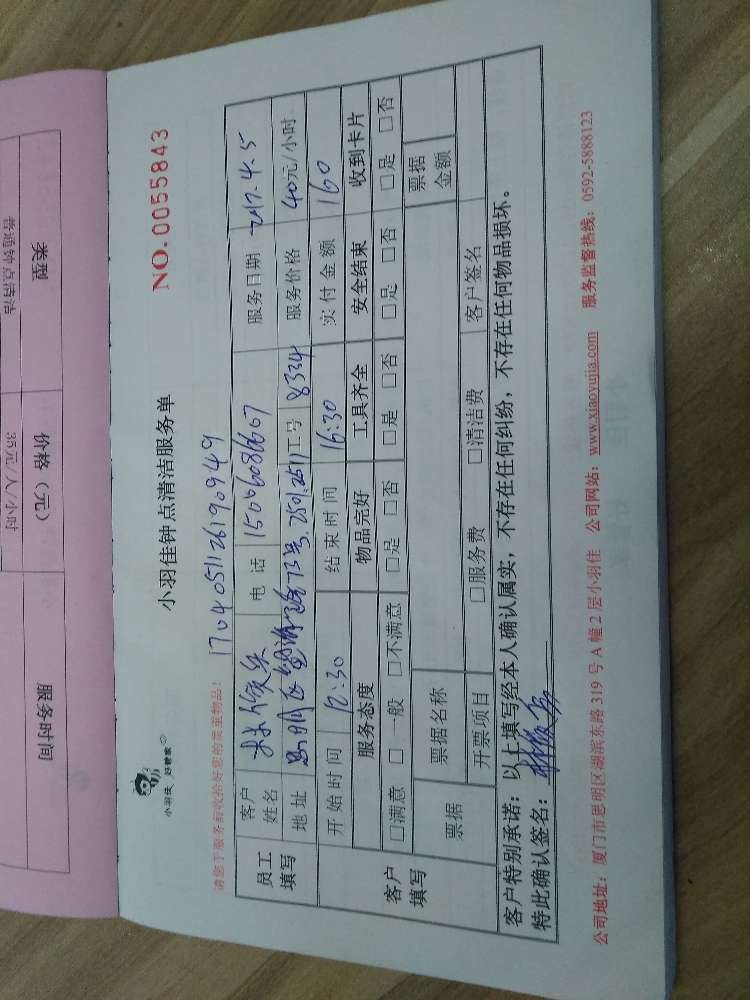 类型
价格（元）
服务时间
普通钟点清洁
35元/人/小时
小羽佳 好管家
小羽佳钟点清洁服务单
NO.0055843
请您下服务前收拾好您的贵重物品！
1704051126190949
员工填写
客户姓名
电话 15060086607
服务日期 2017.4.5
地址
工号 8324
服务价格 40元/小时
开始时间 12:30 结束时间 16:30 实付金额 160
客户填写
服务态度 物品完好 工具齐全 安全结束 收到卡片
□满意 □一般 □不满意 □是 □否 □是 □否 □是 □否 □是 □否
票据
票据名称
票据金额
开票项目 □服务费 □清洁费 客户签名
客户特别承诺：以上填写经本人确认属实，不存在任何纠纷，不存在任何物品损坏。
特此确认签名：
公司地址：厦门市思明区湖滨东路 319 号 A 幢 2 层小羽佳 公司网站：www.xiaoyujia.com 服务监督热线：0592-5888123